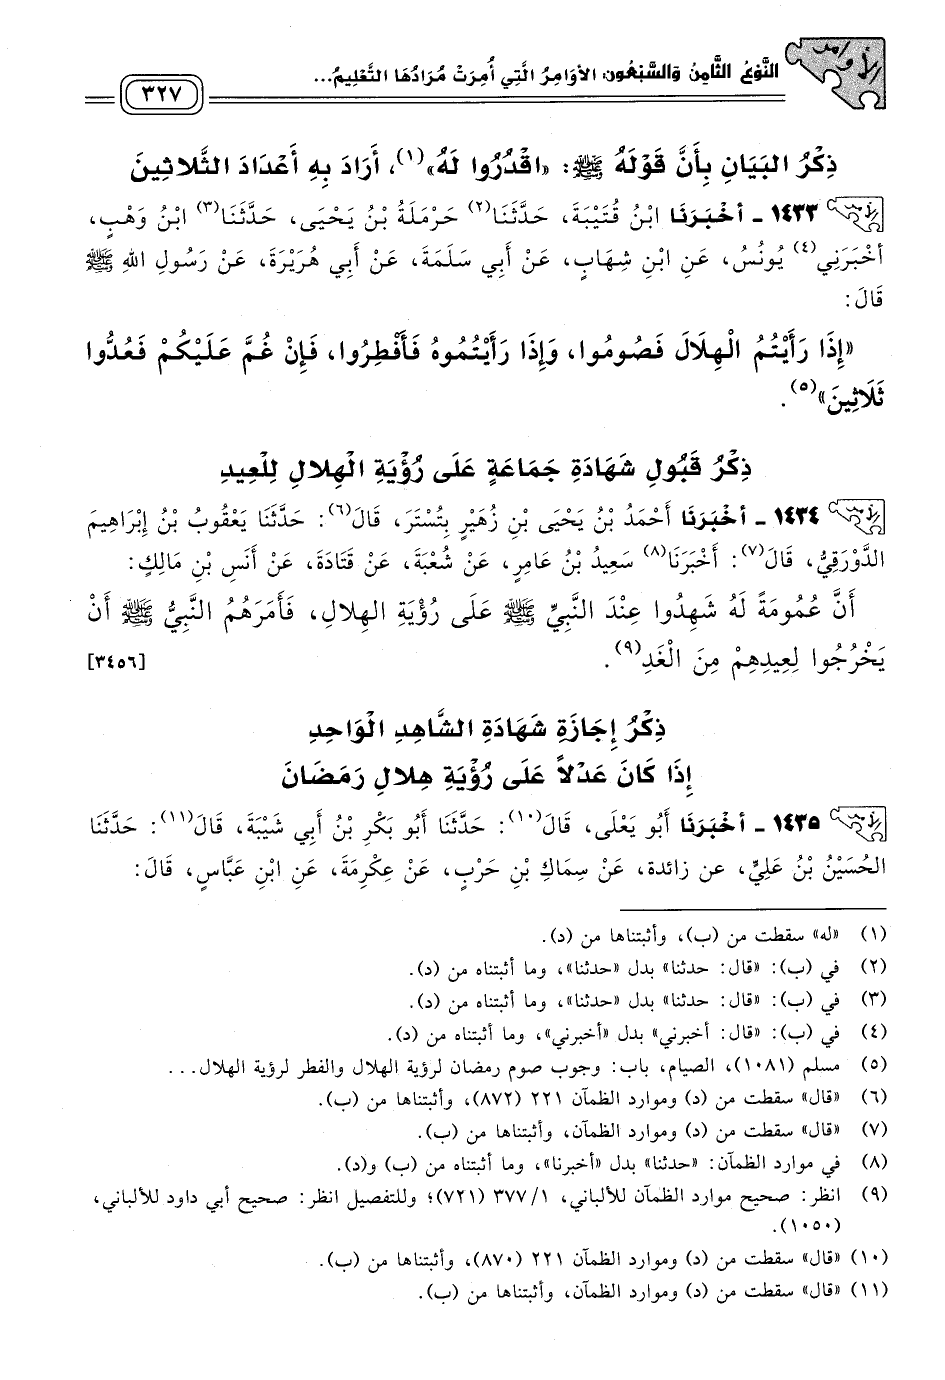 الأوامر
النَّوْعُ الثَّامِنُ والسَّبْعُون: الأوَامِرُ الَّتِي أُمِرَتْ مُرَادُهَا التَّعْلِيمُ...
٣٢٧
ذِكْرُ البَيَانِ بِأَنَّ قَوْلَهُ ﷺ: «اقْدُرُوا لَهُ»(١)، أَرَادَ بِهِ أَعْدَادَ الثَّلاثِينَ
١٤٣٣ - أخْبَرَنَا ابْنُ قُتَيْبَةَ، حَدَّثَنَا(٢) حَرْمَلَةُ بْنُ يَحْيَى، حَدَّثَنَا(٣) ابْنُ وَهْبٍ،
أَخْبَرَنِي(٤) يُونُسُ، عَنِ ابْنِ شِهَابٍ، عَنْ أَبِي سَلَمَةَ، عَنْ أَبِي هُرَيْرَةَ، عَنْ رَسُولِ اللهِ ﷺ
قَالَ:
«إِذَا رَأَيْتُمُ الْهِلَالَ فَصُومُوا، وَإِذَا رَأَيْتُمُوهُ فَأَفْطِرُوا، فَإِنْ غُمَّ عَلَيْكُمْ فَعُدُّوا
ثَلَاثِينَ»(٥).
ذِكْرُ قَبُولِ شَهَادَةِ جَمَاعَةٍ عَلَى رُؤْيَةِ الْهِلالِ لِلْعِيدِ
١٤٣٤ - أخْبَرَنَا أَحْمَدُ بْنُ يَحْيَى بْنِ زُهَيْرٍ بِتُسْتَرَ، قَالَ(٦): حَدَّثَنَا يَعْقُوبُ بْنُ إِبْرَاهِيمَ
الدَّوْرَقِيُّ، قَالَ(٧): أَخْبَرَنَا(٨) سَعِيدُ بْنُ عَامِرٍ، عَنْ شُعْبَةَ، عَنْ قَتَادَةَ، عَنْ أَنَسِ بْنِ مَالِكٍ:
أَنَّ عُمُومَةً لَهُ شَهِدُوا عِنْدَ النَّبِيِّ ﷺ عَلَى رُؤْيَةِ الهِلالِ، فَأَمَرَهُمُ النَّبِيُّ ﷺ أَنْ
يَخْرُجُوا لِعِيدِهِمْ مِنَ الْغَدِ(٩). [٣٤٥٦]
ذِكْرُ إِجَازَةِ شَهَادَةِ الشَّاهِدِ الْوَاحِدِ
إِذَا كَانَ عَدْلاً عَلَى رُؤْيَةِ هِلالِ رَمَضَانَ
١٤٣٥ - أخْبَرَنَا أَبُو يَعْلَى، قَالَ(١٠): حَدَّثَنَا أَبُو بَكْرِ بْنُ أَبِي شَيْبَةَ، قَالَ(١١): حَدَّثَنَا
الحُسَيْنُ بْنُ عَلِيٍّ، عن زائدة، عَنْ سِمَاكِ بْنِ حَرْبٍ، عَنْ عِكْرِمَةَ، عَنِ ابْنِ عَبَّاسٍ، قَالَ:
(١) «له» سقطت من (ب)، وأثبتناها من (د).
(٢) في (ب): «قال: حدثنا» بدل «حدثنا»، وما أثبتناه من (د).
(٣) في (ب): «قال: حدثنا» بدل «حدثنا»، وما أثبتناه من (د).
(٤) في (ب): «قال: أخبرني» بدل «أخبرني»، وما أثبتناه من (د).
(٥) مسلم (١٠٨١)، الصيام، باب: وجوب صوم رمضان لرؤية الهلال والفطر لرؤية الهلال...
(٦) «قال» سقطت من (د) وموارد الظمآن ٢٢١ (٨٧٢)، وأثبتناها من (ب).
(٧) «قال» سقطت من (د) وموارد الظمآن، وأثبتناها من (ب).
(٨) في موارد الظمآن: «حدثنا» بدل «أخبرنا»، وما أثبتناه من (ب) و(د).
(٩) انظر: صحيح موارد الظمآن للألباني، ٣٧٧/١ (٧٢١)؛ وللتفصيل انظر: صحيح أبي داود للألباني،
(١٠٥٠).
(١٠) «قال» سقطت من (د) وموارد الظمآن ٢٢١ (٨٧٠)، وأثبتناها من (ب).
(١١) «قال» سقطت من (د) وموارد الظمآن، وأثبتناها من (ب).